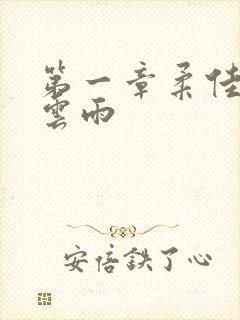 第一章柔佳
雲雨
安倍鉄了心